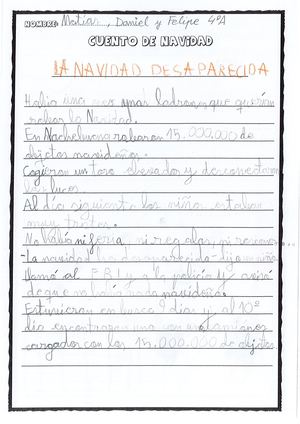 NOMBRE: Matías, Daniel y Felipe 4ºA
CUENTO DE NAVIDAD
LA NAVIDAD DESAPARECIDA
Había una vez unos ladrones que querían
robar la Navidad.
En Nochebuena robaron 15.000.000 de
objetos navideños.
Cogieron un toro elevador y desconectaron
las luces.
Al día siguiente los niños estaban
muy tristes.
No había ni feria, ni regalos, ni
-La navidad ha desaparecido -dijo un niño
llamó al F.B.I y a la policía y avisó
de que no había nada navideño.
Estuvieron en busca días y al 10º
día encontraron una con
cargados con los 15.000.000 de objetos